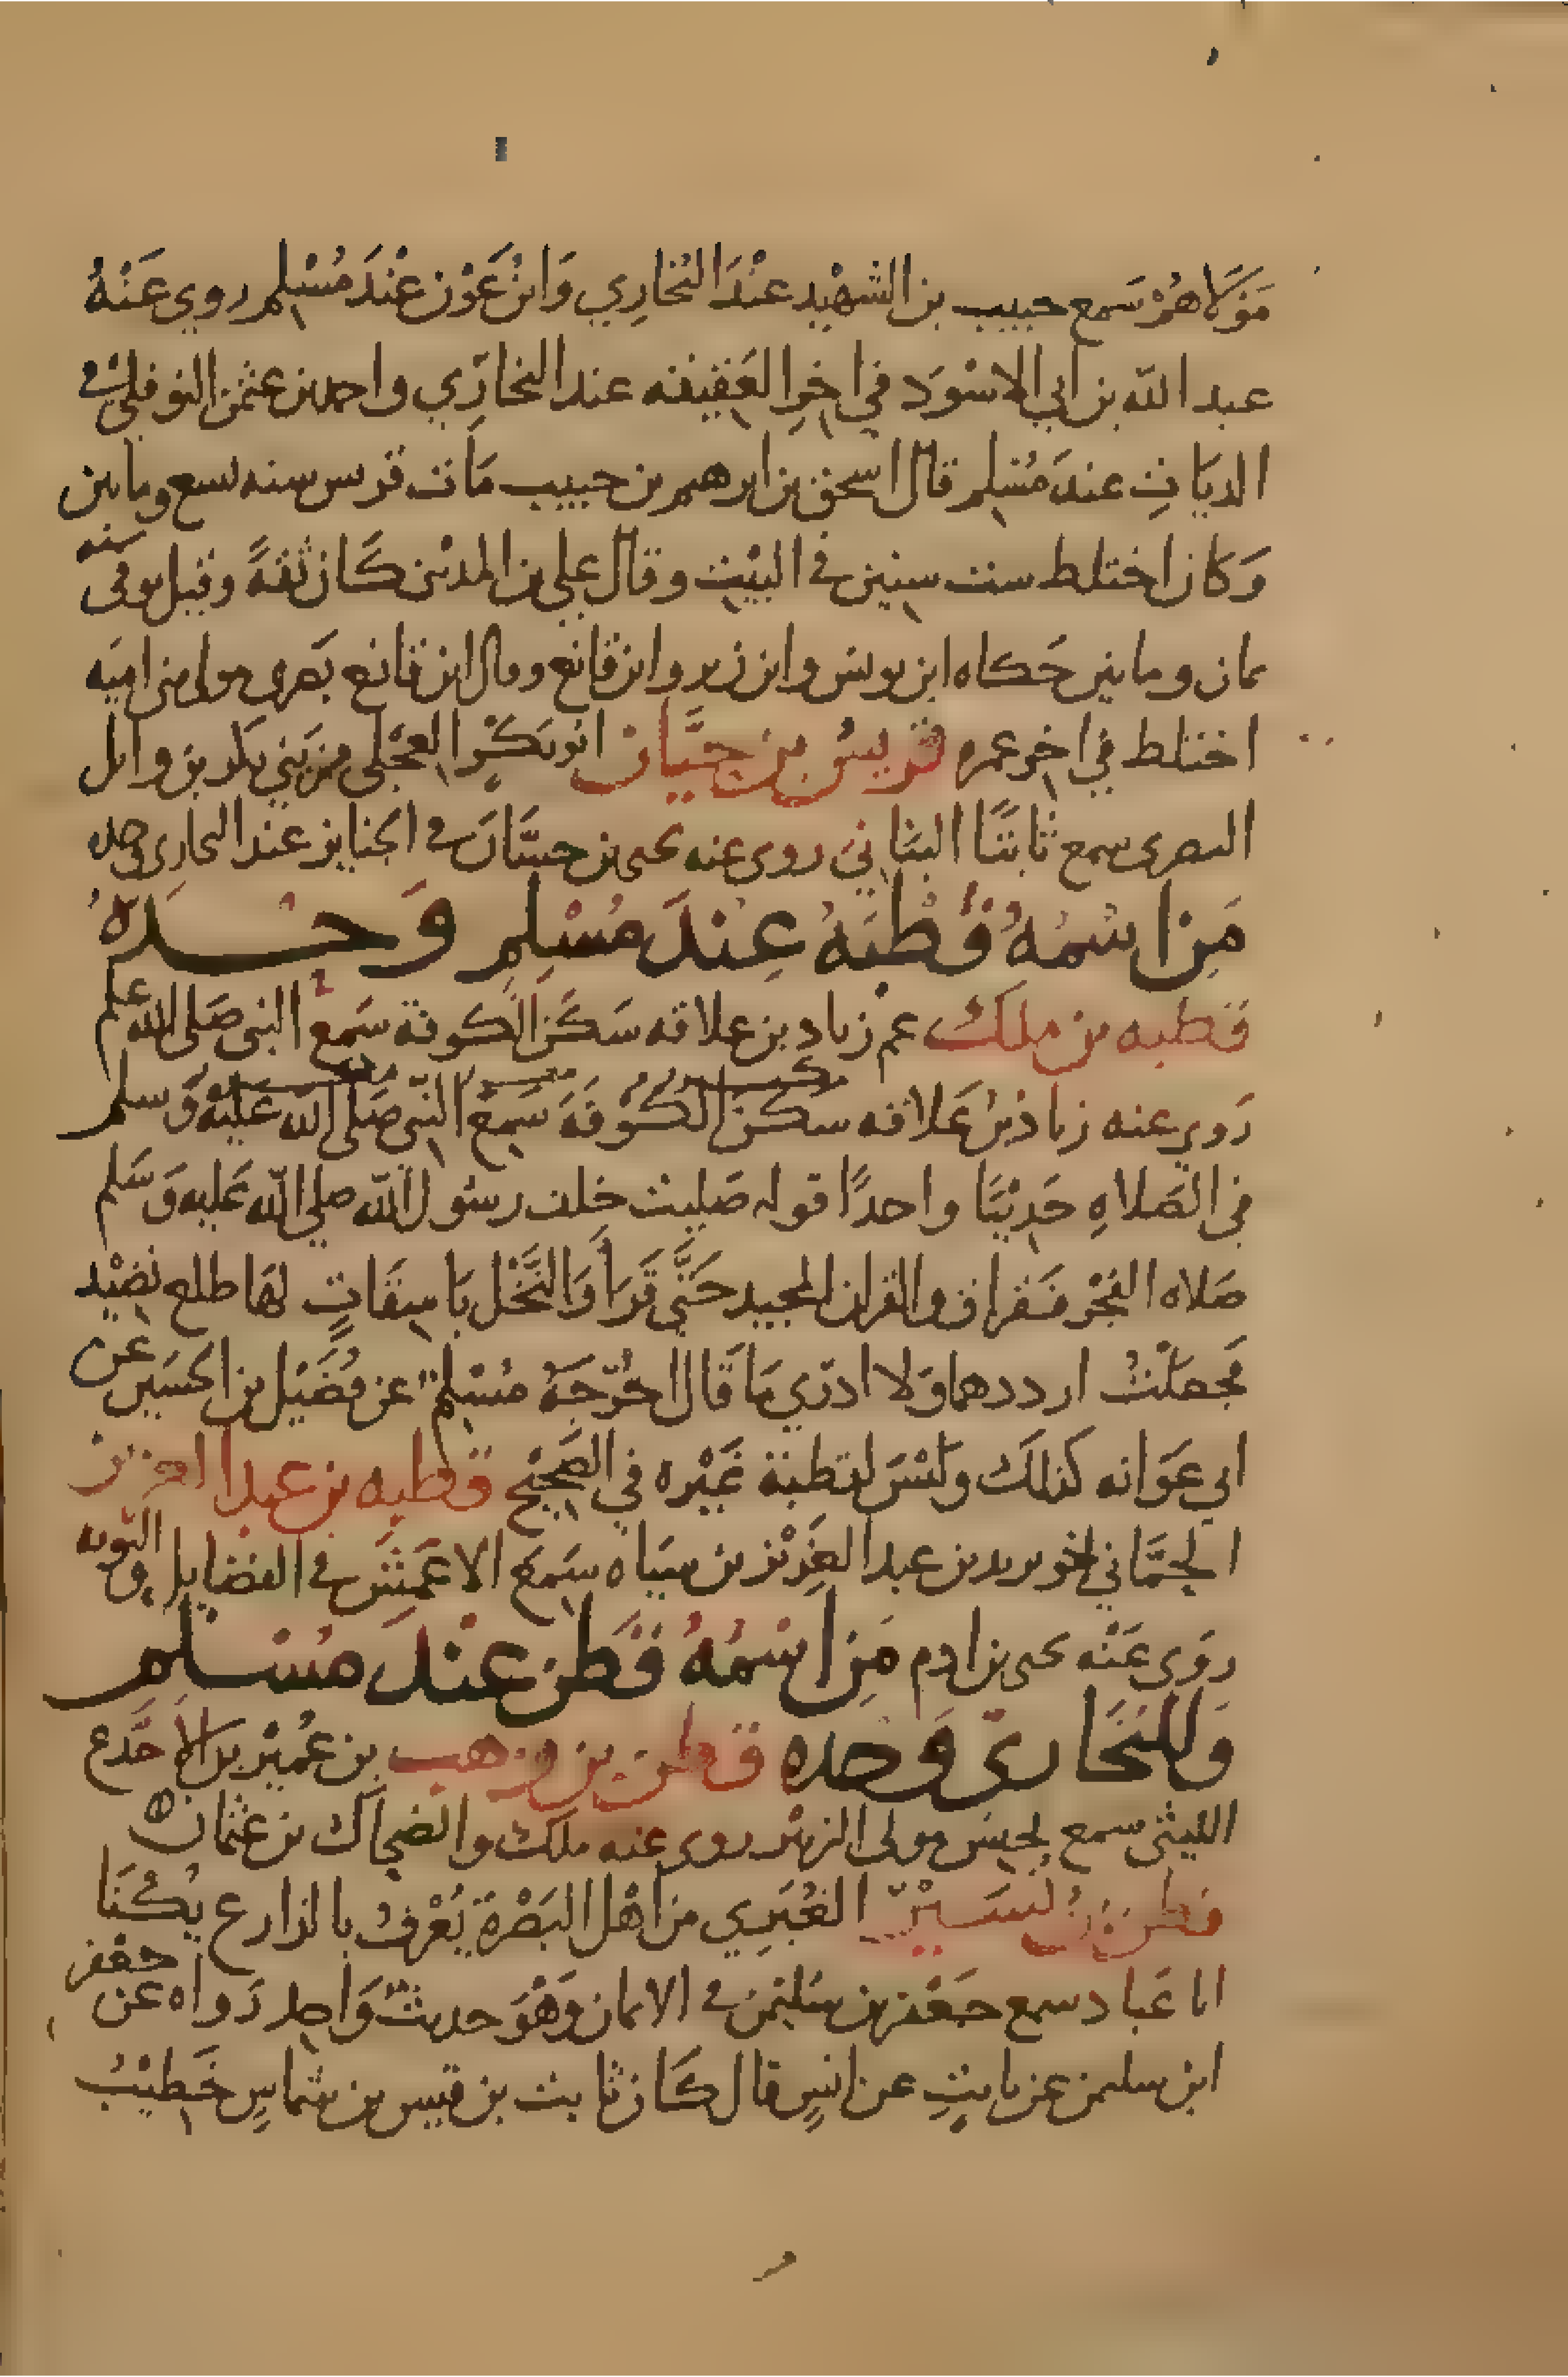 مَوْلَاهُمْ سَمع حبيب بن الشهيد عنْدَ البُخاري وَابْن عَوْن عنْدَ مُسْلم روى عَنْهُ
عبد الله بن ابي الاسْوَد في اخِر العَقيقه عند البخاري واحمد بن عثمن النوفلي في
الديَات عندَ مُسْلم قال اسحق بن ابرهيم بن حبيب مَات قريس سنه تسع ومايتين
وَكان اختلط ست سنين في البيْت وقال علي بن المدينى كَان ثقةً وقيل توفى سنه
ثمان ومايتين حَكاه ابن يونس وابن زبر وابن قانع وقال ابن قانع بَصرى مولى بنى اميَه
اختلط في اخر عمره قريش بن حيَّان ابو بَكْر العجْلى من بَنِي بَكر بن وايل
البصرى سمع ثابتًا البنَاني روى عنه يحيى بن حسَّانَ في الجنايز عند البخارى وحده
مَن اسْمُهُ قُطْبَهُ عِندَ مُسْلِمِ وَحْدَهُ
قطبه بن ملك عم زياد بن علاقه سَكَنَ الكوفة سَمِعَ النبى صَلى الله علم
رَوي عنه زياد بنُ عَلاقه سَكنَ الكُوْفَةَ سَمِعَ النَّبى صَلى الله عَليْهِ وَسلم
في الصَلاةِ حَديْثًا واحدًا قوله صَليت خلف رسُول الله صلي الله عَليه وَسَلم
صَلاه الفَجْر فَقرا ق والقران المجيد حَتَّي قَرَأ وَالنَّخْل بَاسِقَاتٍ لهَا طلع نضيْد
فجعَلْتُ ارددها وَلا ادرَي مَا قَال اخْرّجَهُ مُسْلم عن فُضَيْل بن الحسَين عن
ابي عَوَانه كَذلكَ وليْسَ لقطبَة غيْره في الصَّحِيْح قطبه بن عبد العزيز
الحِمَّاني اخو يزيد بن عبد العَزِيْز بن سِيَاه سَمِعَ الاعمَشَ في الفضايل والتوبه
روَى عَنْه يحيى بن ادم مَن اسْمُهُ قَطَن عنْدَ مُسْلم
وَللبُخَارىّ وَحده قطن بن وهب بن عُمَيْر بن الاجَدع
الليثى سمع يحنس مولى الزبير روى عنه ملك والضحاك بن عثمان
قطن بن نُسَيْر الغُبَرِي من اهْل البَصْرَة يُعْرفُ بالذارع يُكْنَا
ابا عَباد سمع جَعْفر بن سُليمن في الايمان وَهْوَ حديث وَاحد رَواه عن جعفر
ابن سليمن عن ثابتٍ عن انسٍ قال كَان ثابت بن قيس بن شماسٍ خَطيْبُ